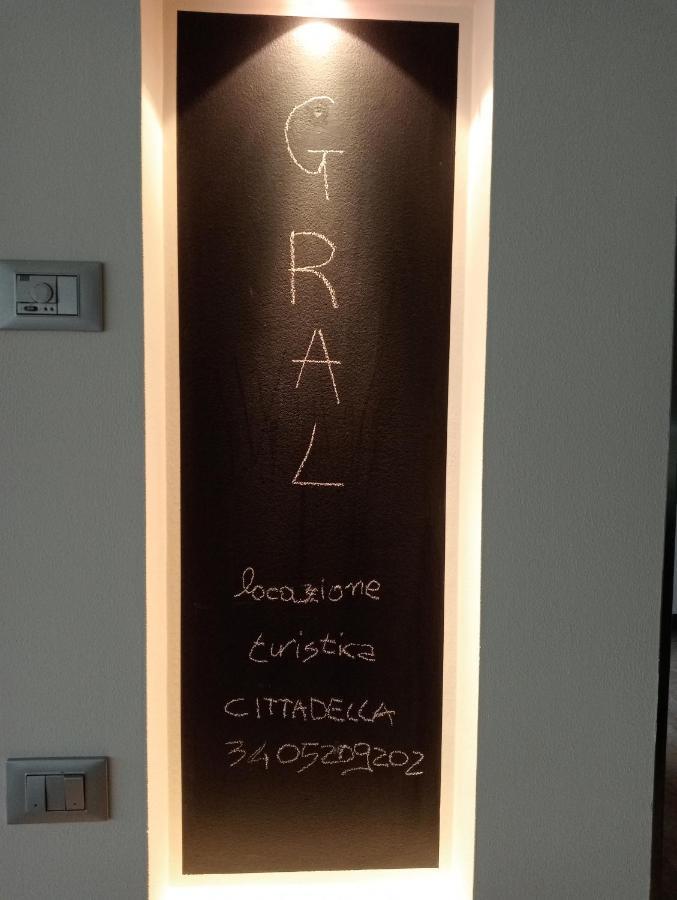 GRAL
locazione
turistica
CITTADELLA
3405209202